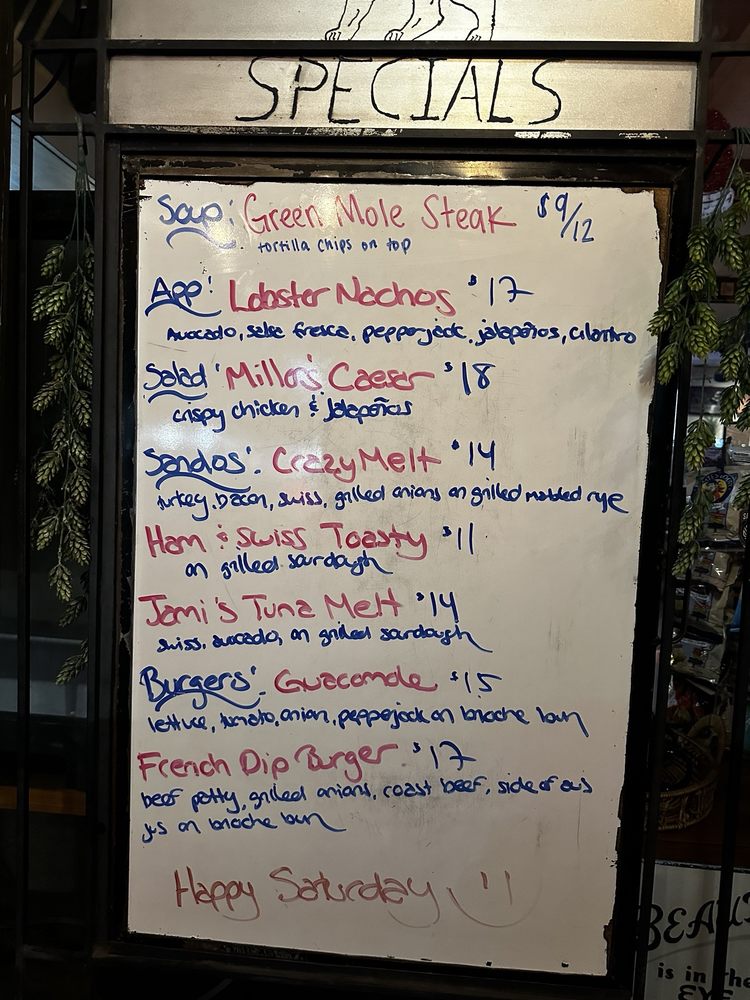 SPECIALS
Soup: Green Mole Steak $9/12
tortilla chips on top
App: Lobster Nachos $17
Avocado, salsa fresca, pepperjack, jalapeños, cilantro
Salad: Miller's Caesar $18
crispy chicken & Jalapeños
Sandos: Crazy Melt $14
turkey, bacon, swiss, grilled onions on grilled marbled rye
Ham & Swiss Toasty $11
on grilled sourdough
Jami's Tuna Melt $14
swiss, avocado, on grilled sourdough
Burgers: Guacamole $15
lettuce, tomato, onion, pepperjack on brioche bun
French Dip Burger $17
beef patty, grilled onions, roast beef, side of aus
jus on brioche bun
Happy Saturday
is in the
EYE